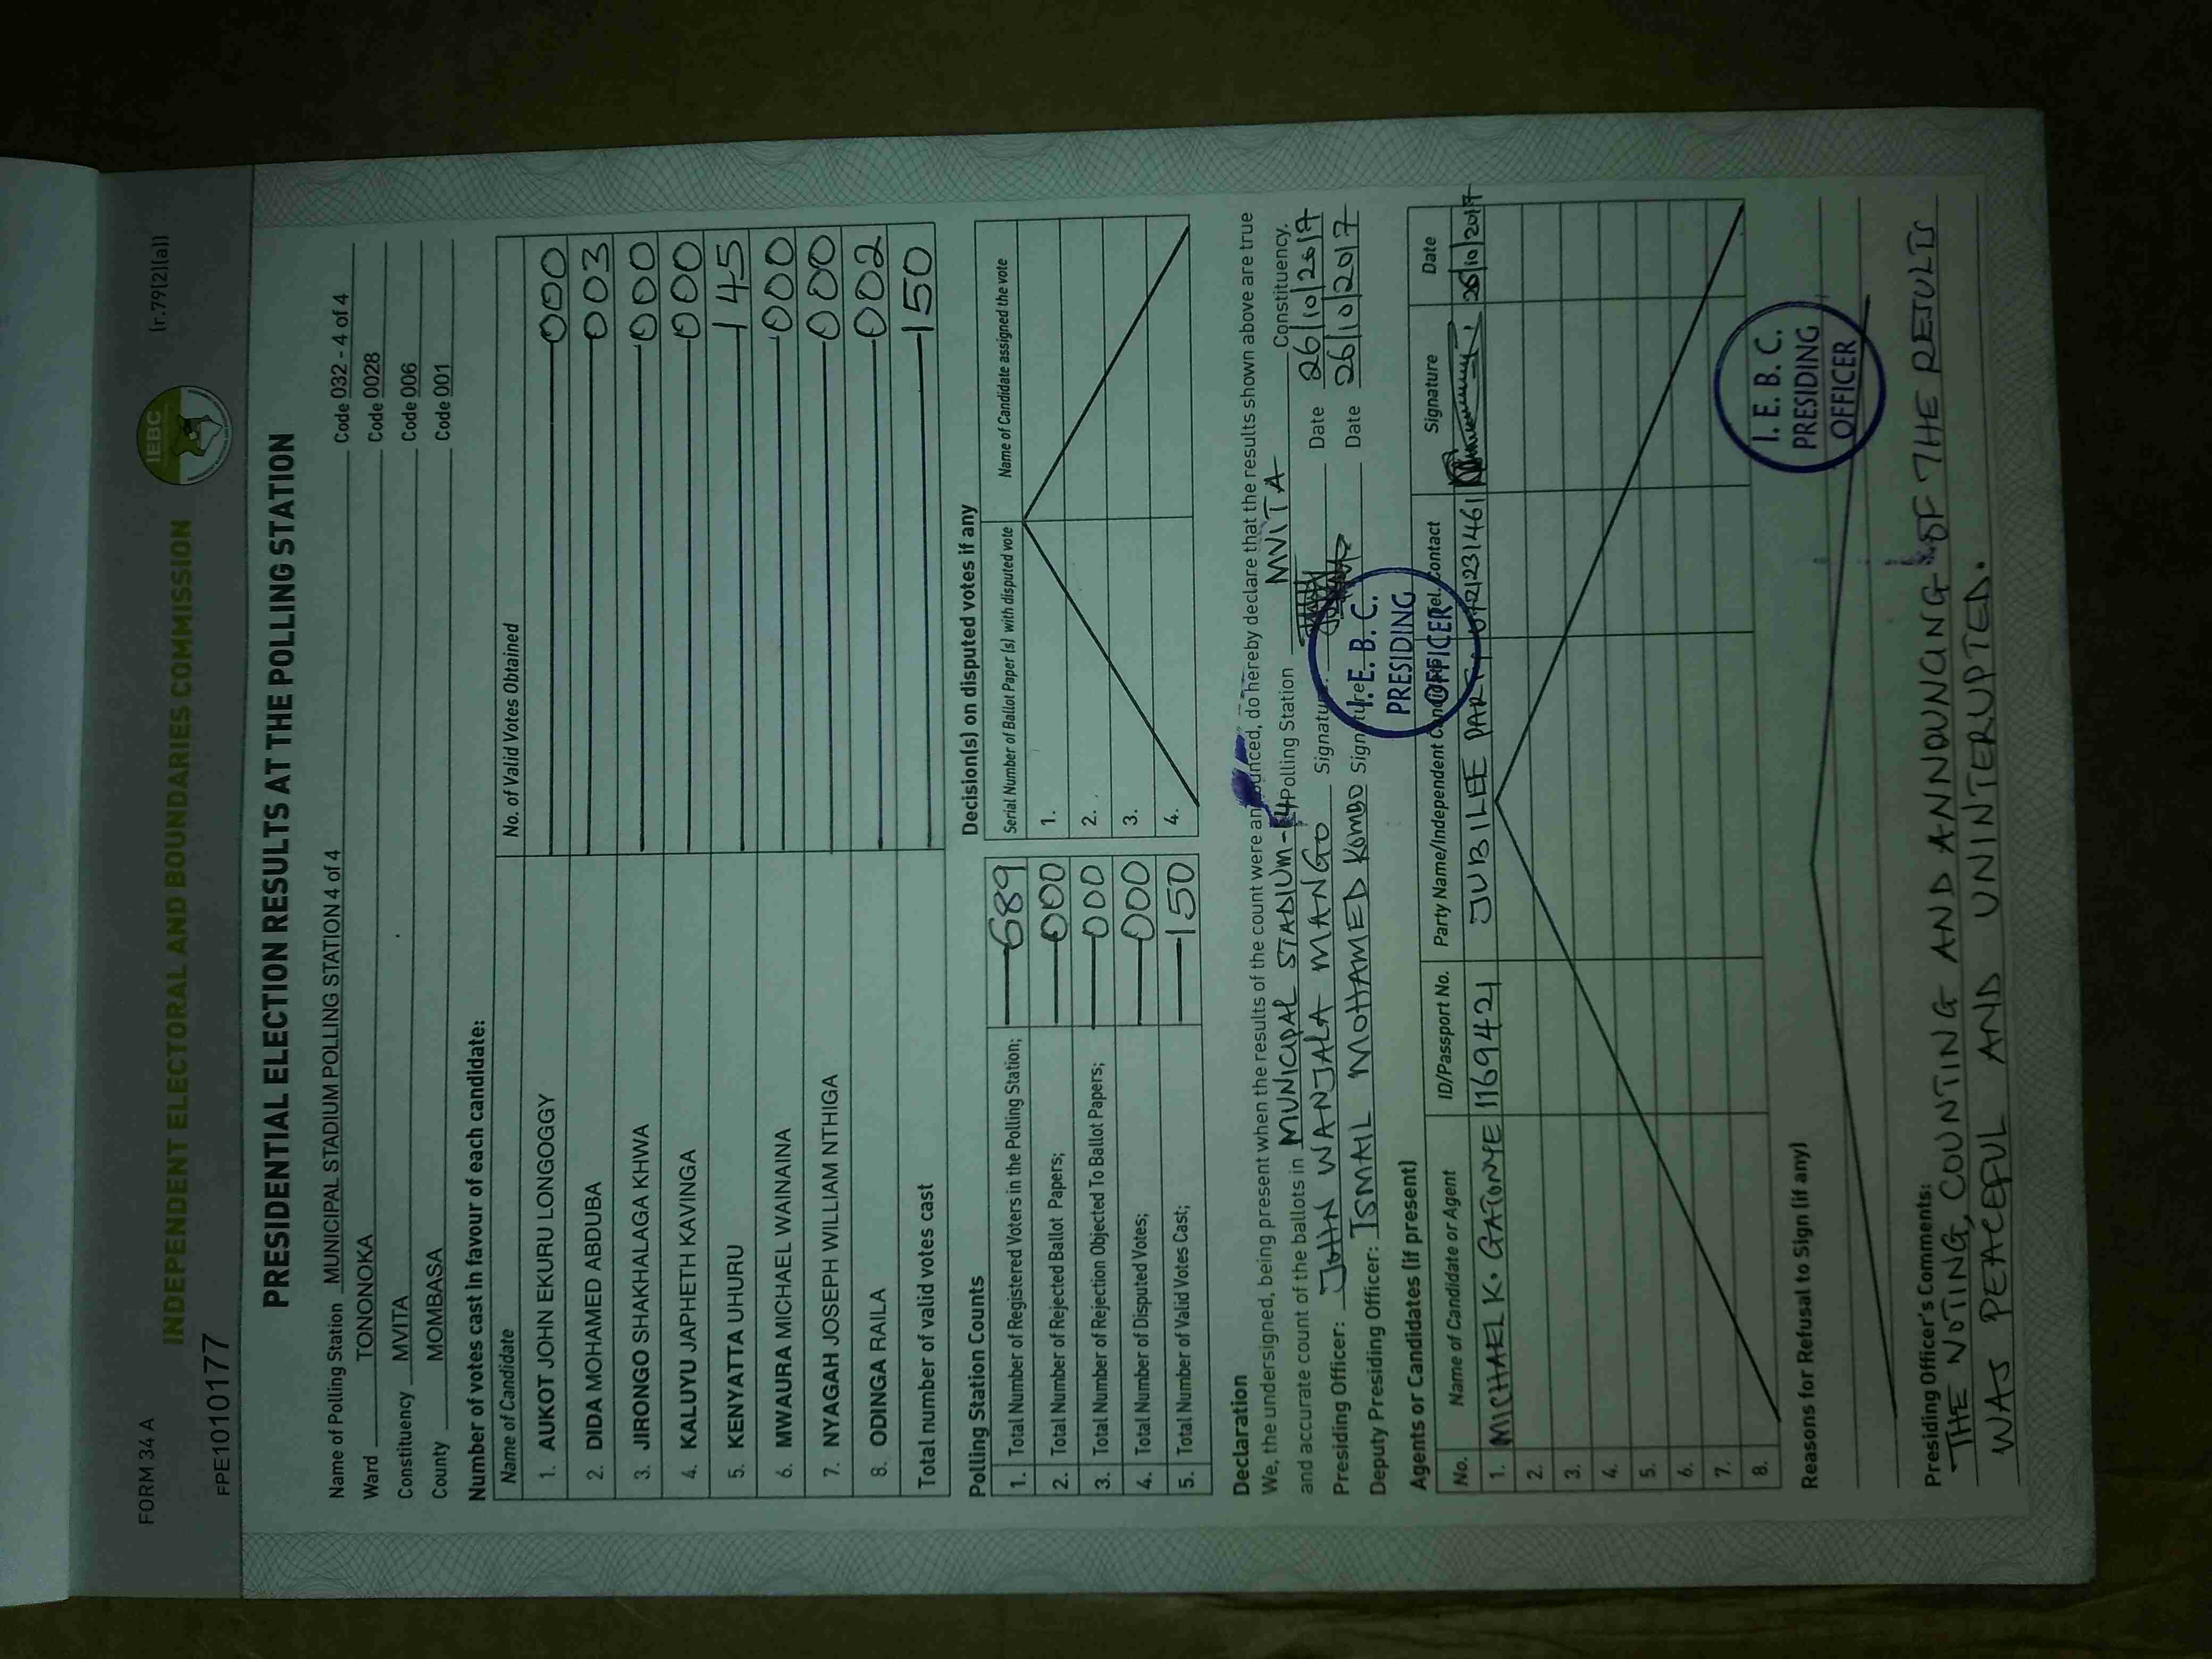 FORM 34 A
(r.79(2)(a))
IEBC
INDEPENDENT ELECTORAL AND BOUNDARIES COMMISSION
FPE1010177
PRESIDENTIAL ELECTION RESULTS AT THE POLLING STATION
Name of Polling Station MUNICIPAL STADIUM POLLING STATION 4 of 4 Code 032 - 4 of 4
Ward TONONOKA Code 0028
Constituency MVITA Code 006
County MOMBASA Code 001
Number of votes cast in favour of each candidate:
Name of Candidate No. of Valid Votes Obtained
1. AUKOT JOHN EKURU LONGOGGY 000
2. DIDA MOHAMED ABDUBA 003
3. JIRONGO SHAKHALAGA KHWA 000
4. KALUYU JAPHETH KAVINGA 000
5. KENYATTA UHURU 145
6. MWAURA MICHAEL WAINAINA 000
7. NYAGAH JOSEPH WILLIAM NTHIGA 000
8. ODINGA RAILA 002
Total number of valid votes cast 150
Polling Station Counts
1. Total Number of Registered Voters in the Polling Station; 689
2. Total Number of Rejected Ballot Papers; 000
3. Total Number of Rejection Objected To Ballot Papers; 000
4. Total Number of Disputed Votes; 000
5. Total Number of Valid Votes Cast; 150
Decision(s) on disputed votes if any
Serial Number of Ballot Paper (s) with disputed vote Name of Candidate assigned the vote
1.
2.
3.
4.
Declaration
We, the undersigned, being present when the results of the count were announced, do hereby declare that the results shown above are true
and accurate count of the ballots in MUNICIPAL STADIUM-4 Polling Station MVITA Constituency.
Presiding Officer: JOHN WANJALA MANGO Signature Date 26/10/2017
Deputy Presiding Officer: ISMAIL MOHAMED KOMBO Signature Date 26/10/2017
I. E. B. C.
PRESIDING
OFFICER
Agents or Candidates (if present)
No. Name of Candidate or Agent ID/Passport No. Party Name/Independent Candidate Tel. Contact Signature Date
1. MICHAEL K. GATONYE 11169421 JUBILEE PARTY 26/10/2017
2.
3.
4.
5.
6.
7.
8.
I. E. B. C.
PRESIDING
OFFICER
Reasons for Refusal to Sign (if any)
Presiding Officer's Comments:
THE VOTING, COUNTING AND ANNOUNCING OF THE RESULTS
WAS PEACEFUL AND UNINTERUPTED.